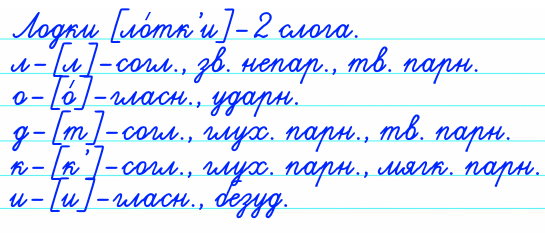 Лодки [ло́тк'и]-2 слога.
л-[л]-согл., зв. непар., тв. парн.
о-[о́]-гласн., ударн.
д-[т]-согл., глух. парн., тв. парн.
к-[к']-согл., глух. парн., мягк. парн.
и-[и]-гласн., безуд.